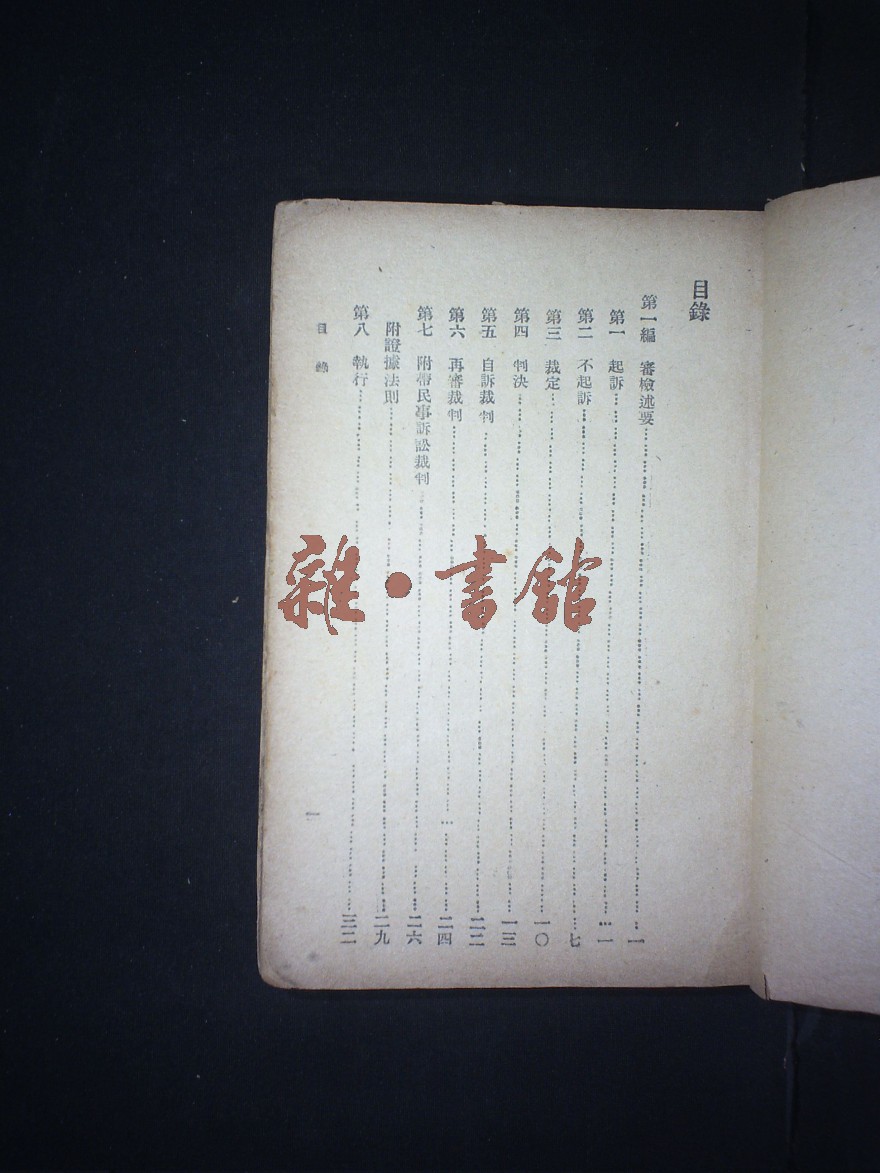 目錄
第一編 審檢述要……一
第一 起訴……一
第二 不起訴……七
第三 裁定……一〇
第四 判決……一三
第五 自訴裁判……二二
第六 再審裁判……二四
第七 附帶民事訴訟裁判……二六
附證據法則……二九
第八 執行……三二
目錄
一
雜·書館